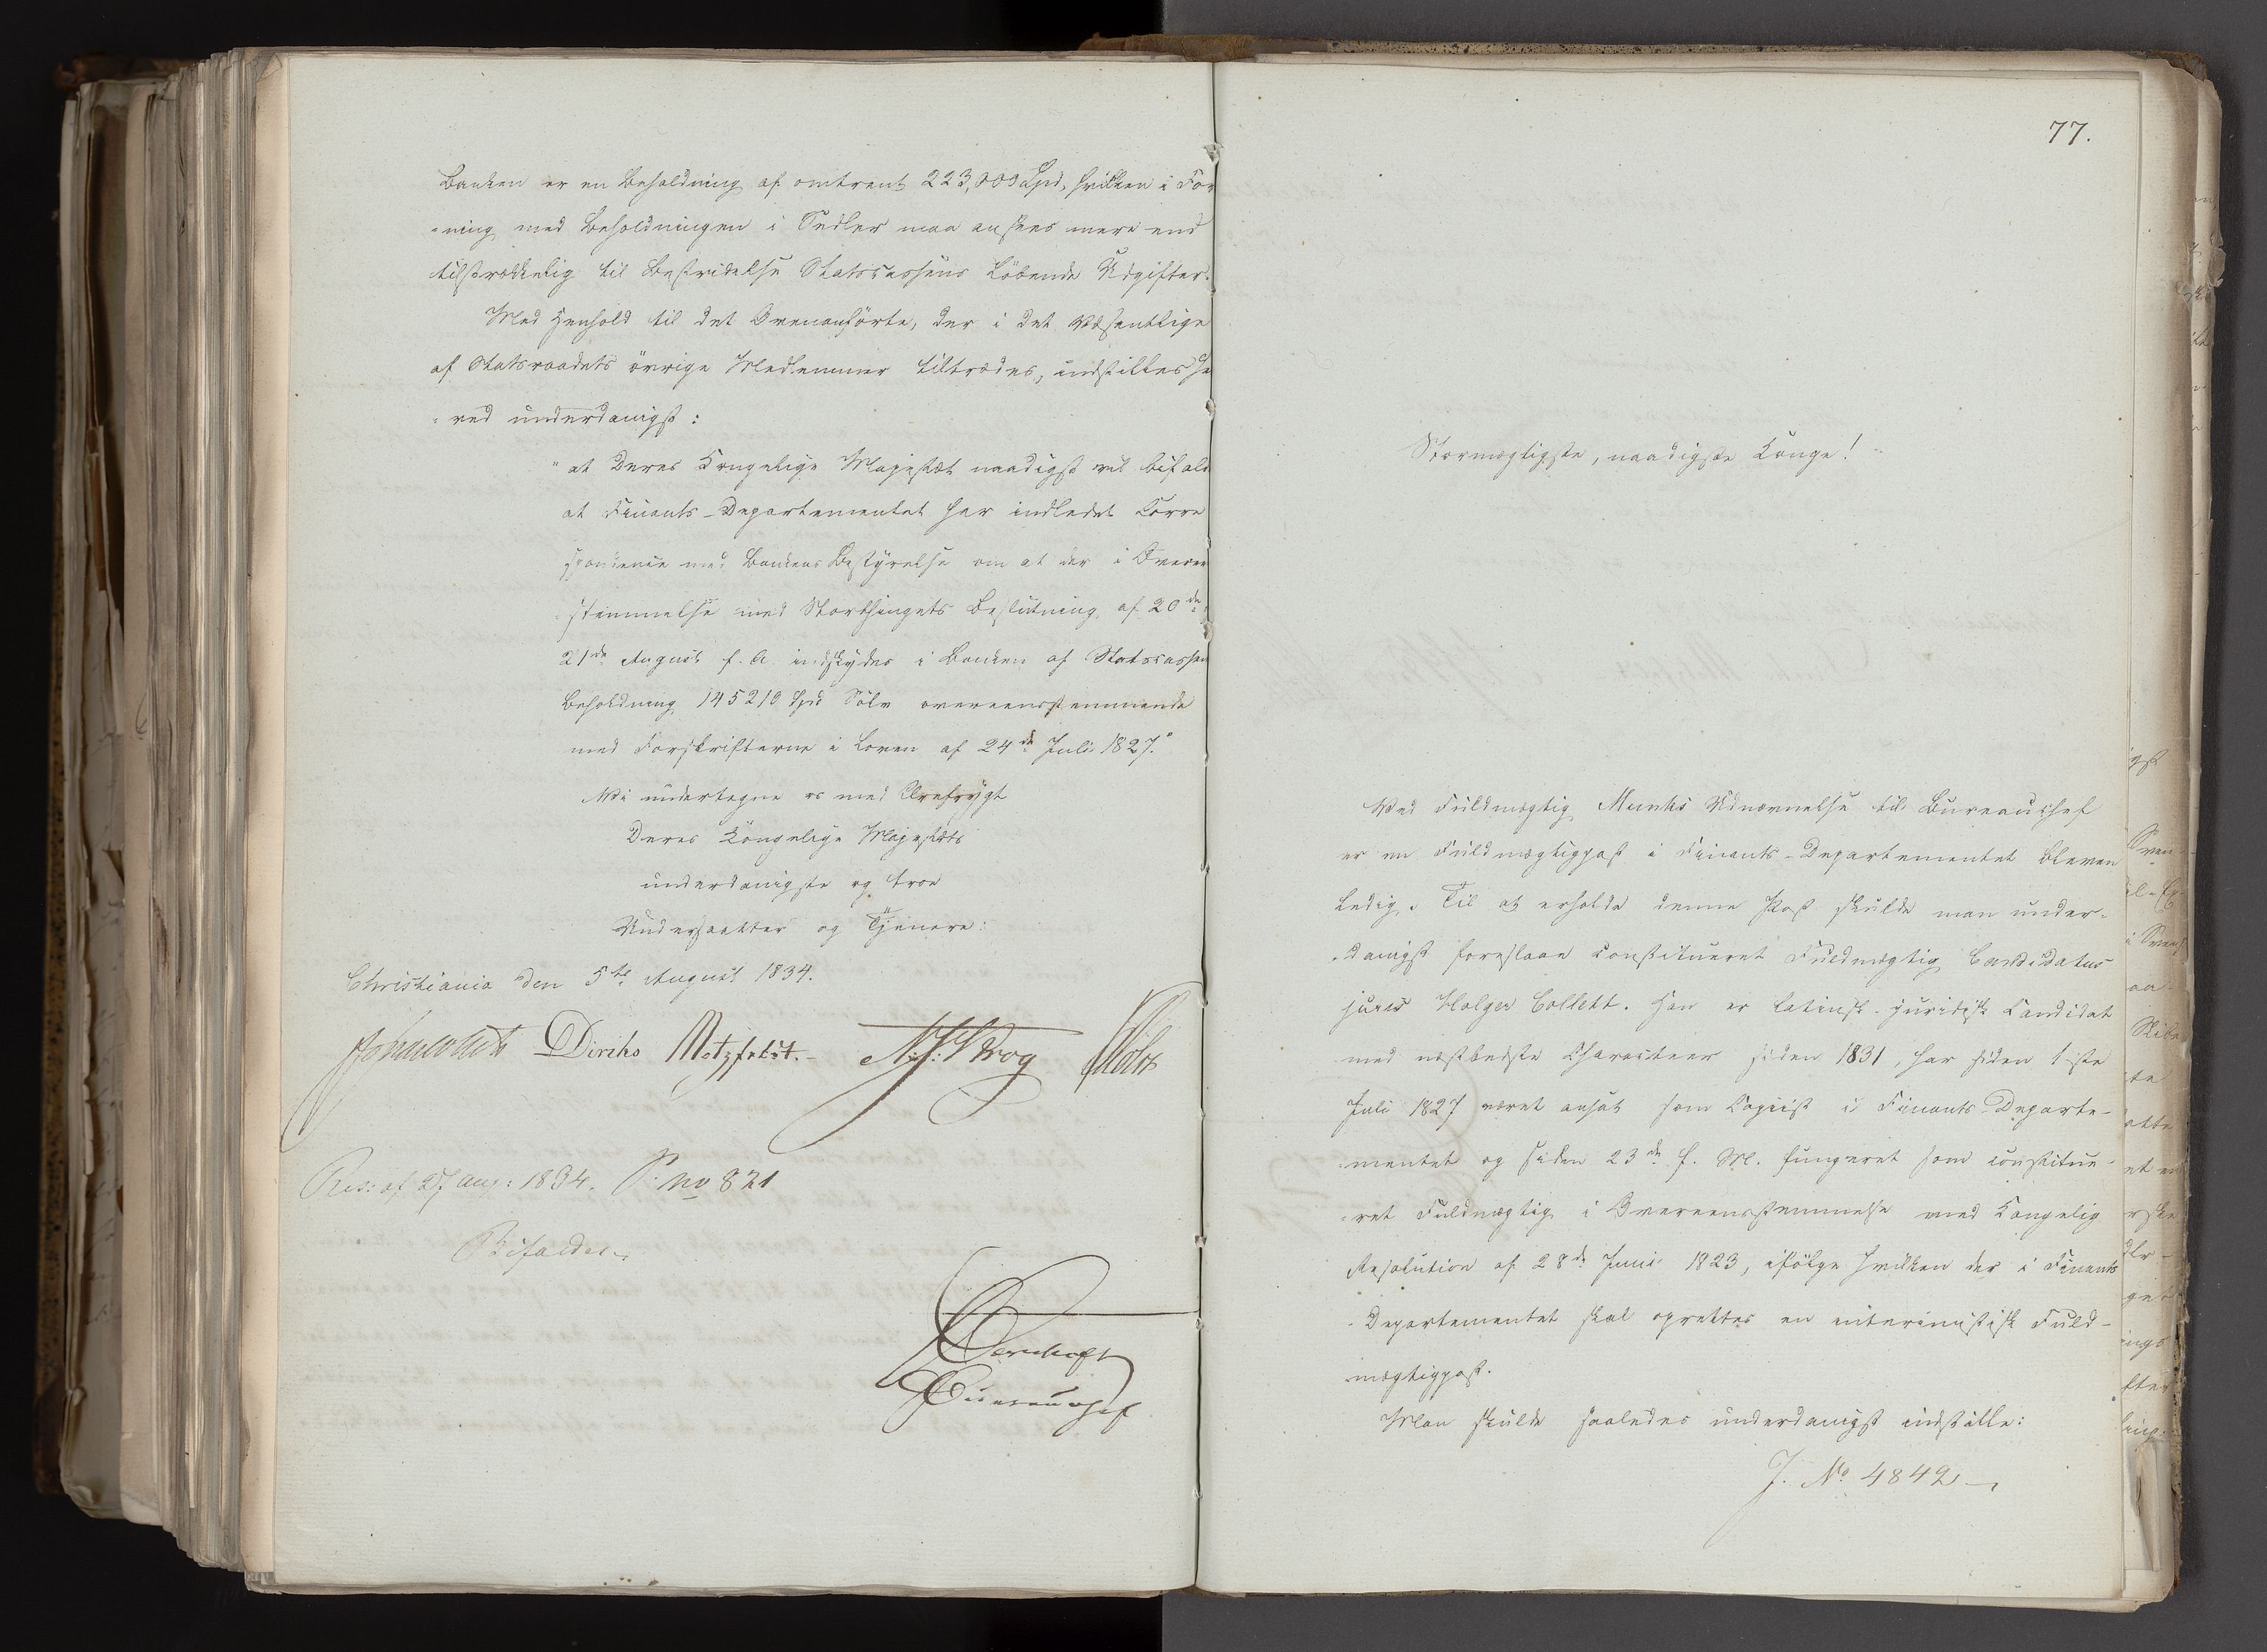 Banken er en Beholdning af omtrent 223,000 Spd, hvilken i For
-ning med Beholdningen i Sedler maa ansees mere end
tilstrækkelig til Bestridelse Statscassens løbende Udgifter.
Med Henhold til det Ovenanførte, der i det Væsentlige
af Statsraadets øvrige Medlemmer tiltrædes, indstilles he
-ved underdanigst:
"at Deres Kongelige Majestæt naadigst vil bifald
at Finants-Departementet har indledet Corre
spondence med Bankens Bestyrelse om at der i Overen
stemmelse med Storthingets Beslutning af 20de
21de August f. A. indskydes i Banken af Statscassen
Beholdning 145210 Spd Sølv overeensstemmende
med Forskrifterne i Loven af 24de Juli 1827."
Vi undertegne os med Ærefrygt
Deres Kongelige Majestæts
underdanigste og troe
Undersaatter og Tjenere:
Christiania den 5te August 1834.
Diriks Motzfeldt.
Res: af 27 Aug: 1834. P. No 821
Bifaldes
Bureauchef
77.
Stormægtigste, naadigste Konge!
Ved Fuldmægtig Munks Udnævnelse til Bureauchef
er en Fuldmægtigpost i Finants-Departementet bleven
ledig. Til at erholde denne Post skulde man under-
-danigst foreslaae constitueret Fuldmægtig Candidatus
juris Holger Collett. Han er latinsk-juridisk Candidat
med næstbedste Characteer siden 1831, har siden 1ste
Juli 1827 været ansat som Copiist i Finants-Departe-
-mentet og siden 23de f. M. fungeret som constitue-
-ret Fuldmægtig i Overeensstemmelse med Kongelig
Resolution af 28de Juni 1823, ifølge hvilken der i Finants
-Departementet skal oprettes en interimistisk Fuld-
mægtigpost.
Man skulde saaledes underdanigst indstille:
J. No 4842